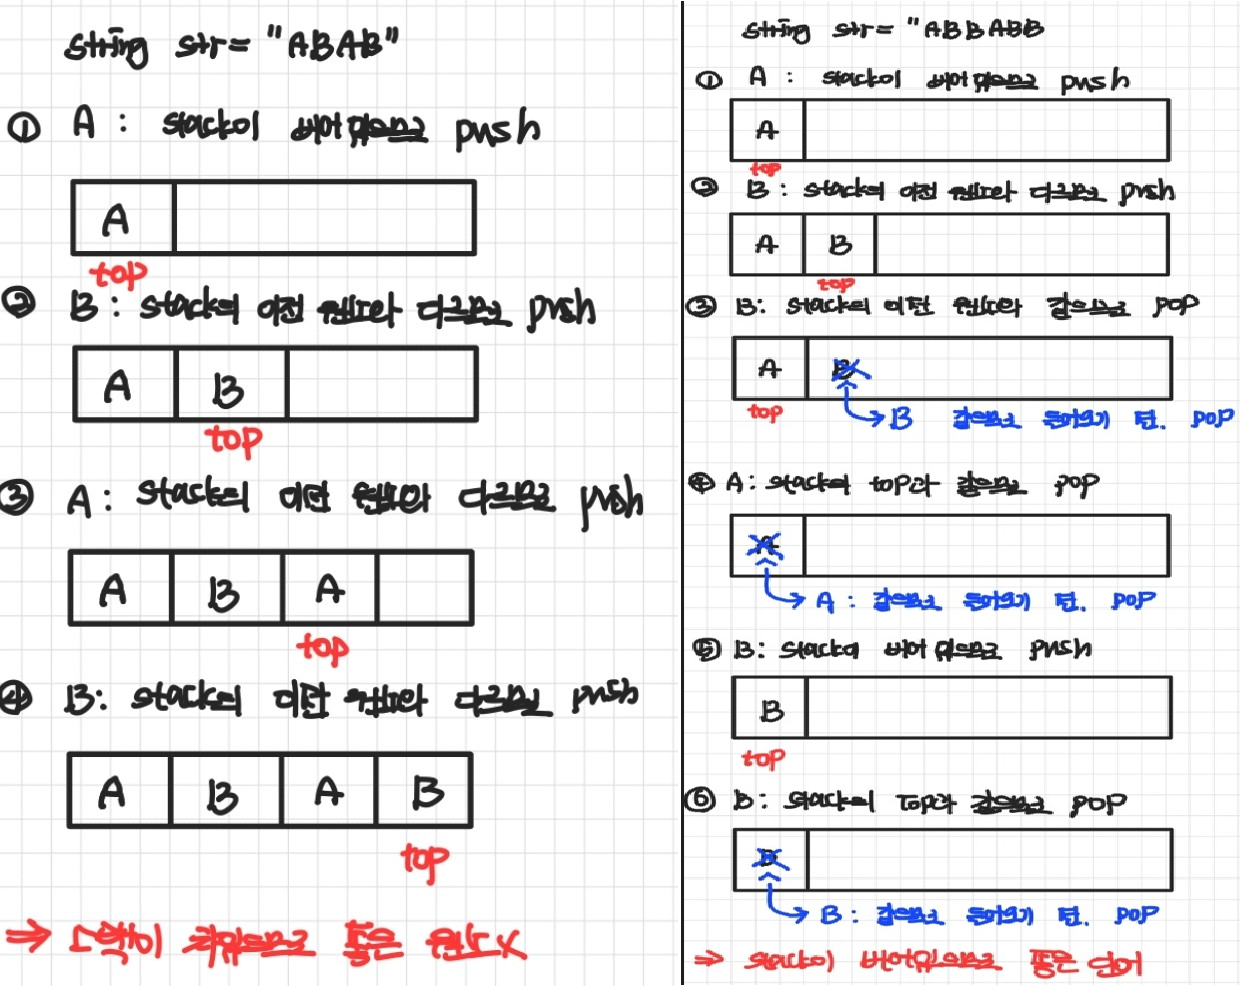 string str = "ABAB"
① A : stack이 비어있으므로 push
A
top
② B : stack의 이전 원소와 다르므로 push
A B
top
③ A : stack의 이전 원소와 다르므로 push
A B A
top
④ B : stack의 이전 원소와 다르므로 push
A B A B
top
⇒ 스택이 채워있으므로 좋은 X
string str = "ABBABB
① A : stack이 비어있으므로 push
A
top
② B : stack의 이전 원소와 다르므로 push
A B
top
③ B : stack의 이전 원소와 같으므로 pop
A B
top
B 같으므로 들어오기 전. pop
④ A : stack의 top과 같으므로 pop
A
A : 같으므로 들어오기 전. pop
⑤ B : stack이 비어있으므로 push
B
top
⑥ B : stack의 Top과 같으므로 pop
B
B : 같으므로 들어오기 전. pop
⇒ stack이 비어있으므로 좋은 단어